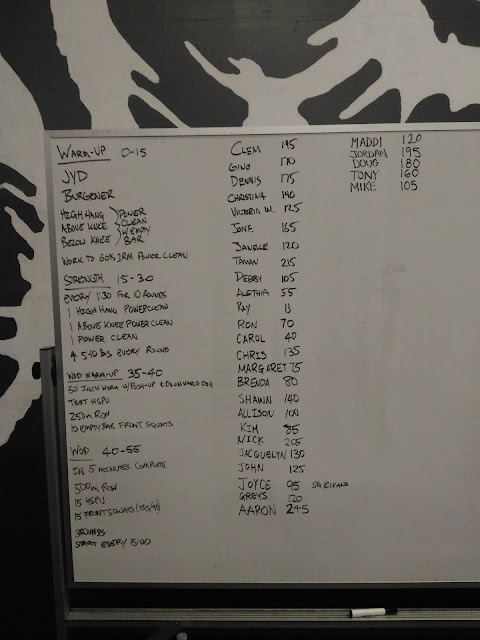 WARM-UP 0-15
JYD
BURGENER
HIGH HANG
ABOVE KNEE
BELOW KNEE
POWER
CLEAN
W/ EMPTY
BAR
WORK TO 60% 1RM POWER CLEAN
STRENGTH 15-30
EVERY 1:30 FOR 10 ROUNDS
1 HIGH HANG POWERCLEAN
1 ABOVE KNEE POWER CLEAN
1 POWER CLEAN
↑ 5-10 LBS EVERY ROUND
WOD WARM-UP 35-40
50' INCH WORM W/ PUSH-UP & DOWNWARD DOG
TEST HSPU
250m ROW
10 EMPTY BAR FRONT SQUATS
WOD 40-55
IN 5 MINUTES COMPLETE
500m ROW
15 HSPU
15 FRONT SQUATS
3 ROUNDS
START EVERY 5:00
CLEM 195
GINO 170
DENNIS 175
CHRISTINA 140
VICTORIA W. 125
JON F. 165
JANELLE 120
215
DEBBY 105
ALETHIA 55
RAY
RON 70
CAROL 40
CHRIS 135
MARGARET 75
BRENDA 80
SHAWN 140
ALLISON 100
KIM 85
NICK 205
JACQUELYN 130
JOHN 125
JOYCE 95
GREYS 120
AARON 245
MADDI 120
JORDAN 195
DOUG 180
TONY 160
MIKE 105